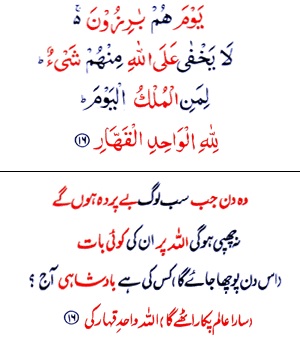 يَوْمَ هُمْ بٰرِزُوْنَ ۚ۬
لَا يَخْفٰى عَلَى اللّٰهِ مِنْهُمْ شَيْءٌ ؕ
لِمَنِ الْمُلْكُ الْيَوْمَ ؕ
لِلّٰهِ الْوَاحِدِ الْقَهَّارِ ﴿۱۶﴾
وہ دن جب سب لوگ بے پردہ ہوں گے
نہ چھپی ہوگی اللہ پر ان کی کوئی بات
(اس دن پوچھا جائے گا) کس کی ہے بادشاہی آج ؟
(سارا عالم پکار اٹھے گا) اللہ واحد قہار کی ﴿۱۶﴾